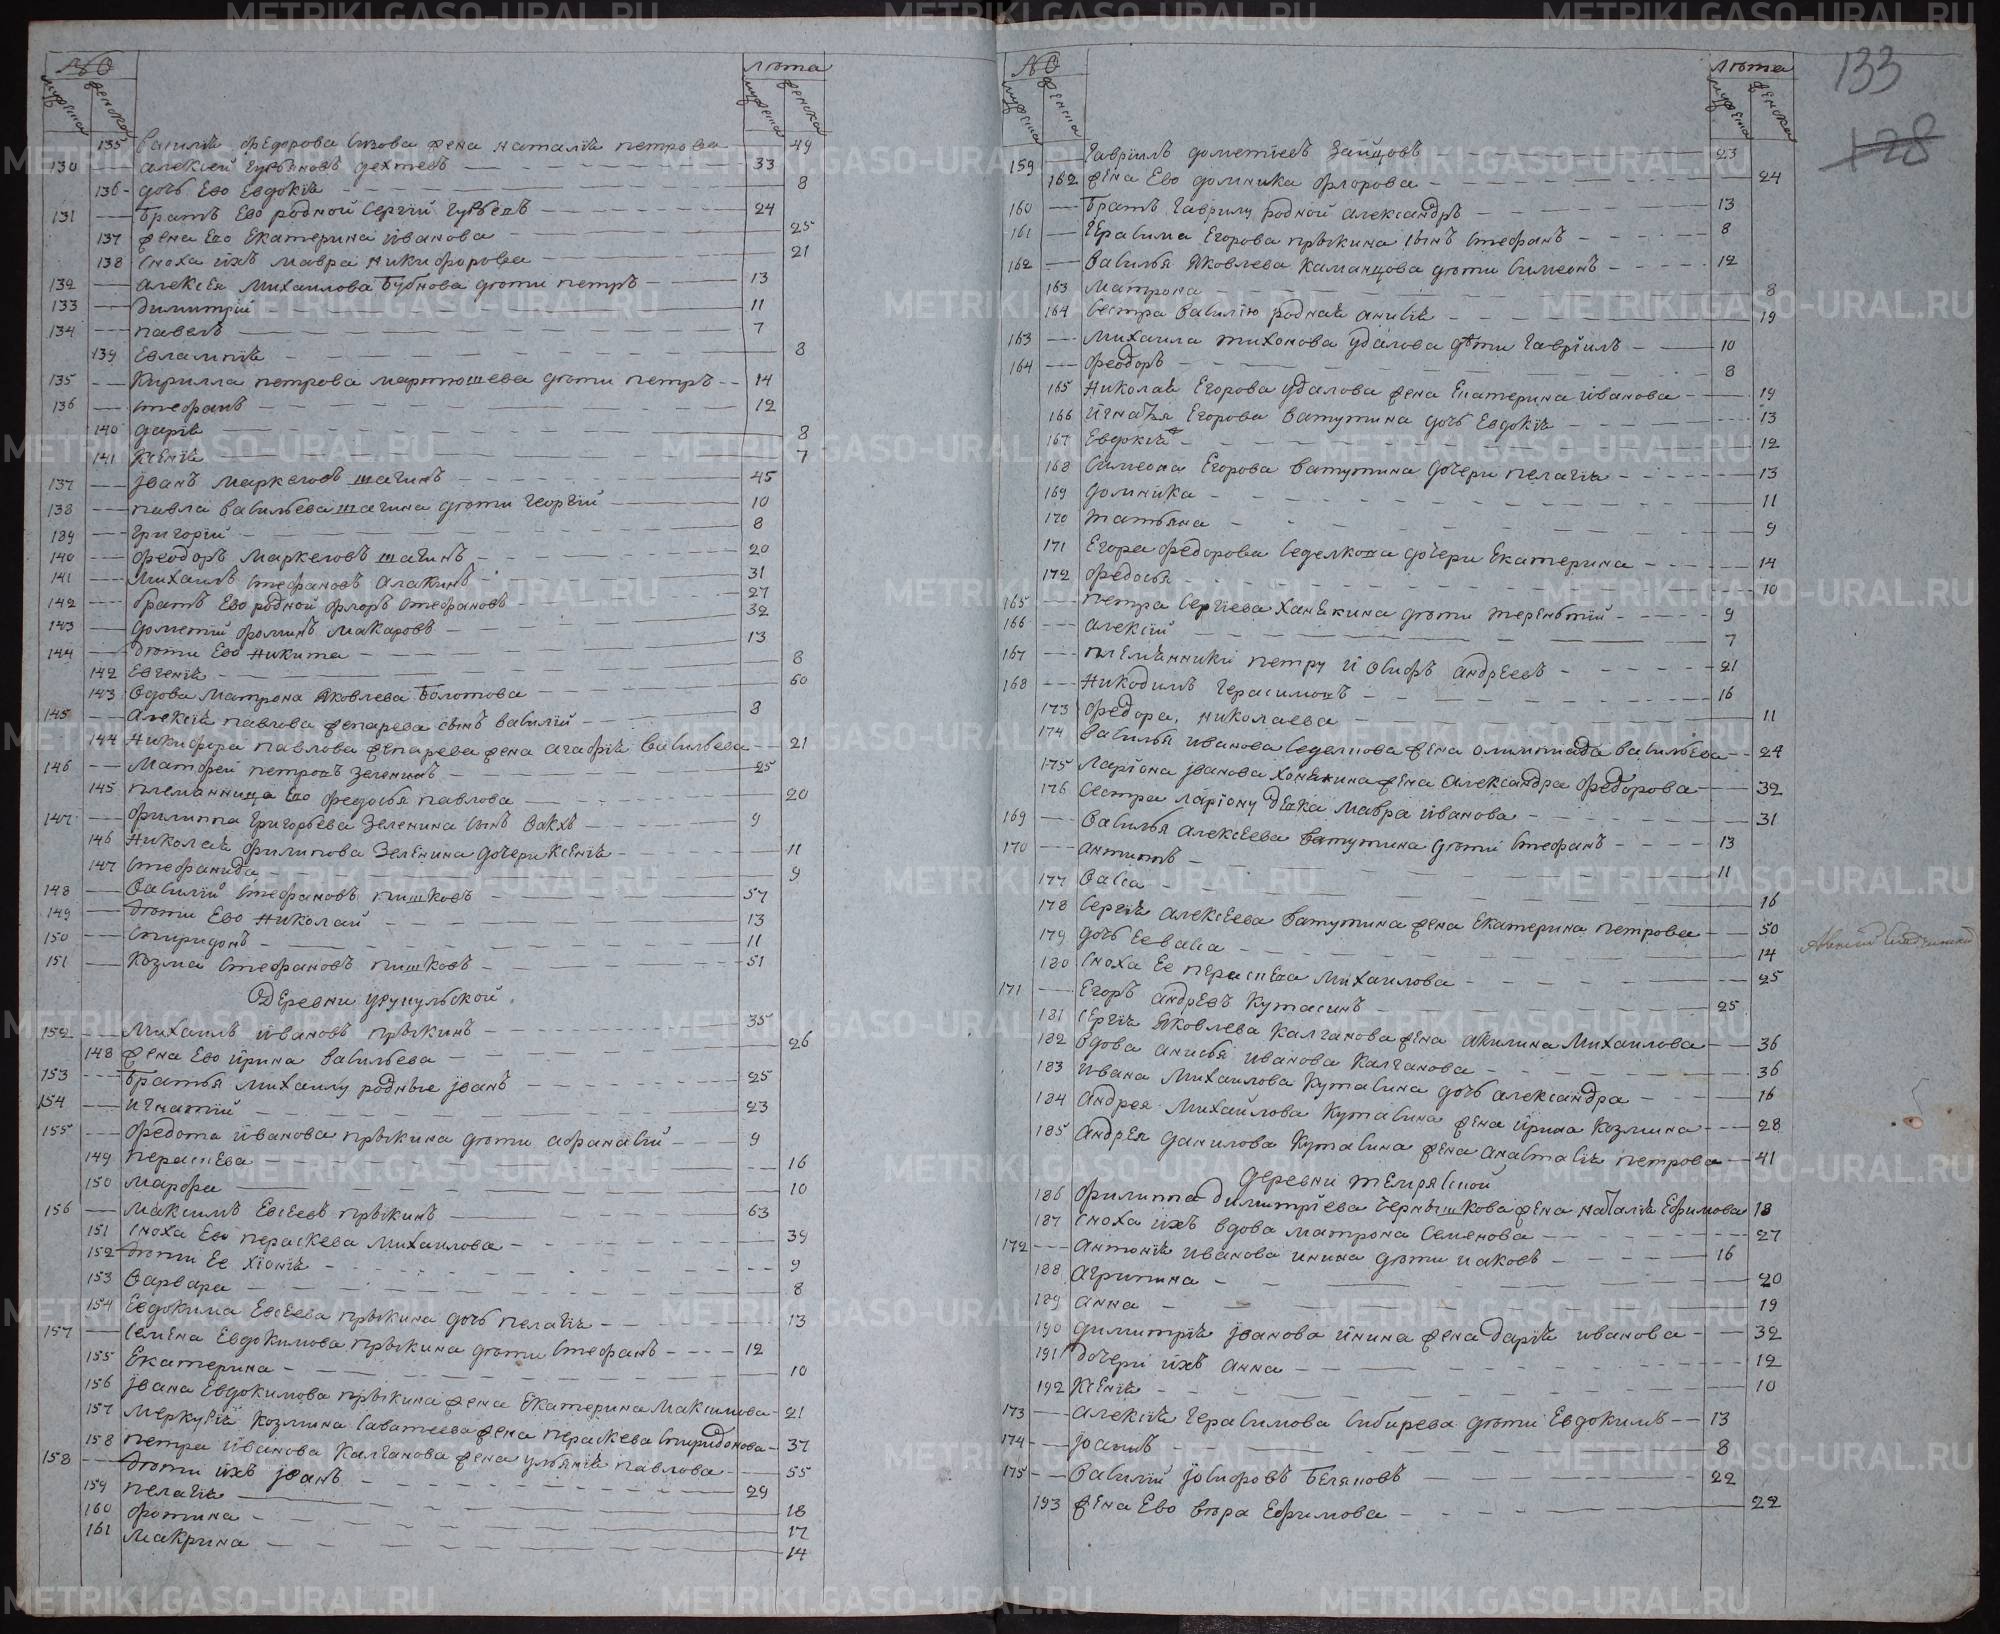 №
лѣта
мужеска
женска
мужеска
женска
135 Василія Федорова Сизова жена Наталія Петрова 49
130 Алексѣй Гурьяновъ Дехтевъ 33
136 дочь Ево Евдокія 8
131 Братъ Ево родной Сергій Гурьевъ 24
137 жена Ево Екатерина Иванова 25
138 Сноха ихъ Мавра Никифорова 21
132 Алексея Михаилова Бубнова дѣти Петръ 13
133 Димитрій 11
134 Павелъ 7
139 Евлампія 8
135 Кирилла Петрова Мартюшева дѣти Петръ 14
136 Стефанъ 12
140 Дарія 8
141 Ксенія 7
137 Іванъ Маркеловъ Шагинъ 45
138 Павла Васильева Шагина дѣти Георгій 10
139 Григорій 8
140 Феодоръ Маркеловъ Шагинъ 20
141 Михаилъ Стефановъ Алакинъ 31
142 братъ Ево родной Флоръ Стефановъ 27
143 Дометій Фоминъ Макаровъ 32
144 дѣти Ево Никита 13
142 Евгенія 8
143 Вдова Матрона Яковлева Болотова 60
145 Алексія Павлова Жепарева сынъ Василій 8
144 Никифора Павлова Жепарева жена Агафія Васильева 21
146 Матфей Петровъ Зеленинъ 25
145 племянница Ево Федосья Павлова 20
147 Филиппа Григорьева Зеленина сынъ Вакхъ 9
146 Николая Филипова Зеленина дочери Ксенія 11
147 Стефанида 9
148 Василій Стефановъ Пишковъ 57
149 дѣти Ево Николай 13
150 Спиридонъ 11
151 Козма Стефановъ Пишковъ 51
Деревни Урупульской
152 Михаилъ Ивановъ Прыкинъ 35
148 жена Ево Ирина Васильева 26
153 Братья Михаилу родные Іванъ 25
154 Игнатій 23
155 Федота Иванова Прыкина дѣти Афанасій 9
149 Пераскева 16
150 Марфа 10
156 Максимъ Евсеевъ Прыкинъ 63
151 Сноха Ево Пераскева Михаилова 39
152 дѣти Ее Хіонія 9
153 Варвара 8
154 Евдокима Евсеева Прыкина дочь Пелагія 13
157 Семена Евдокимова Прыкина дѣти Стефанъ 12
155 Екатерина 10
156 Івана Евдокимова Прыкина жена Екатерина Максимова 21
157 Меркурія Козмина Саватеева жена Пераскева Спиридонова 37
158 Петра Иванова Калганова жена Ульянія Павлова 55
158 дѣти ихъ Іванъ 29
159 Пелагія 18
160 Фотина 17
161 Макрина 14
133
128
№
лѣта
мужеска
женска
мужеска
женска
159 Гавріилъ Дометіевъ Зайцовъ 23
162 жена Ево Домника Флорова 24
160 Братъ Гаврилу родной Александръ 13
161 Герасима Егорова Прыкина сынъ Стефанъ 8
162 Василья Яковлева Каманцова дѣти Симеонъ 12
163 Матрона 8
164 Сестра Василію родная Анисія 19
163 Михаила Тихонова Удалова дѣти Гавріилъ 10
164 Феодоръ 8
165 Николая Егорова Удалова жена Екатерина Иванова 19
166 Игнатья Егорова Ватутина дочь Евдокія 13
167 Евдокія 12
168 Симеона Егорова Ватутина дочери Пелагія 13
169 Домника 11
170 Татьяна 9
171 Егора Федорова Седелкова дочери Екатерина 14
172 Федосья 10
165 Петра Сергіева Ханякина дѣти Терентій 9
166 Алексій 7
167 племянники Петру Иосифъ Андреевъ 21
168 Никодимъ Герасимовъ 16
173 Федора Николаева 11
174 Василья Иванова Седелкова жена Олимпиада Васильева 24
175 Ларіона Іванова Хонякина жена Александра Федорова 32
176 Сестра Ларіону Девка Мавра Иванова 31
169 Василья Алексеева Ватутина дѣти Стефанъ 13
170 Антипъ 11
177 Васса 16
178 Сергія Алексеева Ватутина жена Екатерина Петрова 50
179 дочь Ее Васса 14
180 Сноха Ее Пераскева Михаилова 25
171 Егоръ Андревъ Кутасинъ 25
181 Сергія Яковлева Калганова жена Акилина Михаилова 36
182 Вдова Анисья Иванова Калганова 36
183 Ивана Михаилова Кутасина дочь Александра 16
184 Андрея Михайлова Кутасина жена Ирина Козмина 28
185 Андрея Данилова Кутасина жена Анастасія Петрова 41
Деревни Темряской
186 Филиппа Димитріева Чернышкова жена Наталія Ефимова 18
187 Сноха ихъ вдова Матрона Семенова 27
172 Антонія Иванова Инина дѣти Иаковъ 16
188 Агрипина 20
189 Анна 19
190 Димитрія Іванова Инина жена Дарія Иванова 32
191 Дочери ихъ Анна 12
192 Ксенія 10
173 Алексія Герасимова Сибирева дѣти Евдокимъ 13
174 Іоаннъ 8
175 Василій Іосифовъ Беляновъ 22
193 жена Ево Вѣра Ефимова 22
METRIKI.GASO-URAL.RU